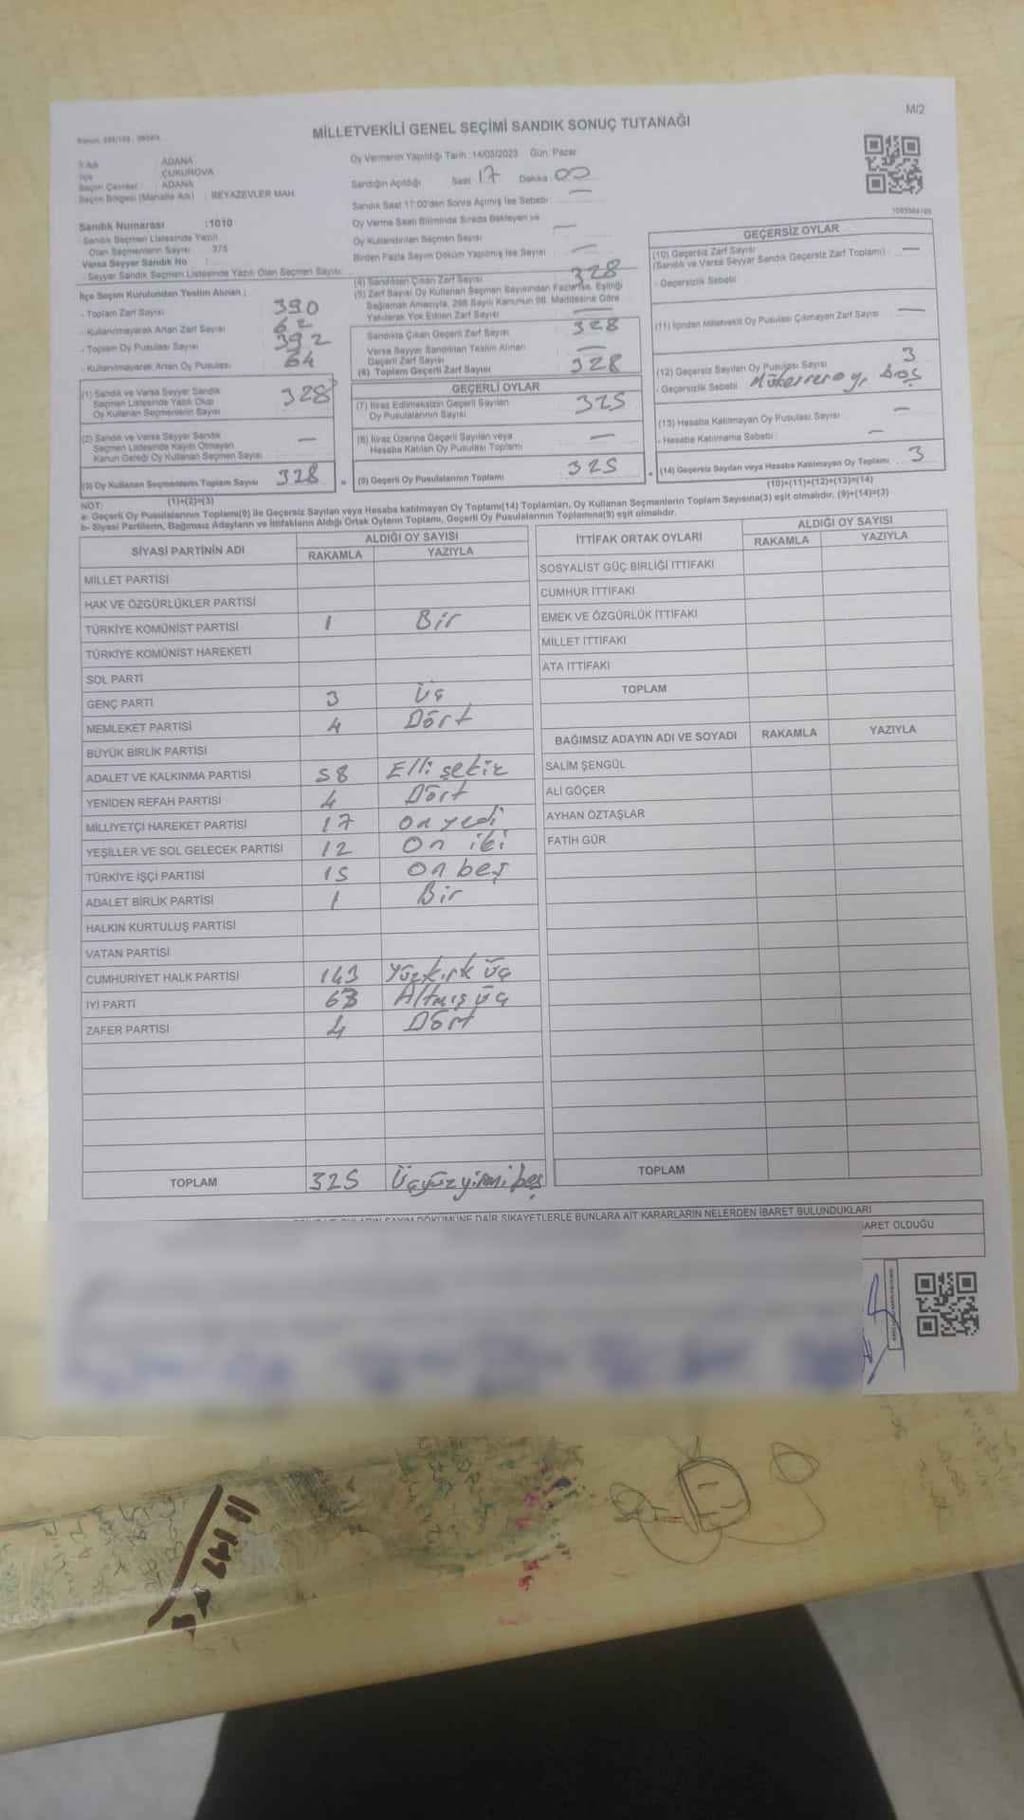 M/2
MİLLETVEKİLİ GENEL SEÇİMİ SANDIK SONUÇ TUTANAĞI
ADANA
ÇUKUROVA
Seçim Çevresi : ADANA
Seçim Bölgesi (Mahalle Adı) : BEYAZEVLER MAH.
Oy Vermenin Yapıldığı Tarih : 14/05/2023 Gün: Pazar
Sandığın Açıldığı Saat 17 Dakika 00
Sandık Saat 17:00'den Sonra Açılmış İse Sebebi
Oy Verme Saati Bitiminde Sırada Bekleyen ve
Oy Kullandırılan Seçmen Sayısı
Birden Fazla Sayım Döküm Yapılmış İse Sayısı
Sandık Numarası :1010
Sandık Seçmen Listesinde Yazılı
Olan Seçmenlerin Sayısı 375
Varsa Seyyar Sandık No
Seyyar Sandık Seçmen Listesinde Yazılı Olan Seçmen Sayısı
İlçe Seçim Kurulundan Teslim Alınan :
- Toplam Zarf Sayısı 390
- Kullanılmayarak Artan Zarf Sayısı 62
- Toplam Oy Pusulası Sayısı 392
- Kullanılmayarak Artan Oy Pusulası 64
(1) Sandık ve Varsa Seyyar Sandık
Seçmen Listesinde Yazılı Olup
Oy Kullanan Seçmenlerin Sayısı 328
(2) Sandık ve Varsa Seyyar Sandık
Seçmen Listesinde Kayıtlı Olmayan
Kanun Gereği Oy Kullanan Seçmen Sayısı —
(3) Oy Kullanan Seçmenlerin Toplam Sayısı 328
(1)+(2)=(3)
(4) Sandıktan Çıkan Zarf Sayısı 328
(5) Zarf Sayısı Oy Kullanan Seçmen Sayısından Fazla İse, Eşitliği
Sağlamak Amacıyla, 298 Sayılı Kanunun 98. Maddesine Göre
Yakılarak Yok Edilen Zarf Sayısı —
Sandıkta Çıkan Geçerli Zarf Sayısı 328
Varsa Seyyar Sandıktan Teslim Alınan
Geçerli Zarf Sayısı —
(6) Toplam Geçerli Zarf Sayısı 328
GEÇERLİ OYLAR
(7) İtiraz Edilmeksizin Geçerli Sayılan
Oy Pusulalarının Sayısı 325
(8) İtiraz Üzerine Geçerli Sayılan veya
Hesaba Katılan Oy Pusulası Toplamı —
(9) Geçerli Oy Pusulalarının Toplamı 325
GEÇERSİZ OYLAR
(10) Geçersiz Zarf Sayısı
(Sandık ve Varsa Seyyar Sandık Geçersiz Zarf Toplamı) —
- Geçersizlik Sebebi
(11) İçinden Milletvekili Oy Pusulası Çıkmayan Zarf Sayısı —
(12) Geçersiz Sayılan Oy Pusulası Sayısı 3
- Geçersizlik Sebebi Mükerrer oy, boş
(13) Hesaba Katılmayan Oy Pusulası Sayısı —
- Hesaba Katılmama Sebebi —
(14) Geçersiz Sayılan veya Hesaba Katılmayan Oy Toplamı 3
(10)+(11)+(12)+(13)=(14)
NOT:
a- Geçerli Oy Pusulalarının Toplamı(9) ile Geçersiz Sayılan veya Hesaba katılmayan Oy Toplamı(14) Toplamları, Oy Kullanan Seçmenlerin Toplam Sayısına(3) eşit olmalıdır. (9)+(14)=(3)
b- Siyasi Partilerin, Bağımsız Adayların ve İttifakların Aldığı Ortak Oyların Toplamı, Geçerli Oy Pusulalarının Toplamına(9) eşit olmalıdır.
SİYASİ PARTİNİN ADI ALDIĞI OY SAYISI
RAKAMLA YAZIYLA
MİLLET PARTİSİ
HAK VE ÖZGÜRLÜKLER PARTİSİ
TÜRKİYE KOMÜNİST PARTİSİ 1 Bir
TÜRKİYE KOMÜNİST HAREKETİ
SOL PARTİ
GENÇ PARTİ 3 Üç
MEMLEKET PARTİSİ 4 Dört
BÜYÜK BİRLİK PARTİSİ
ADALET VE KALKINMA PARTİSİ 58 Elli sekiz
YENİDEN REFAH PARTİSİ 4 Dört
MİLLİYETÇİ HAREKET PARTİSİ 17 on yedi
YEŞİLLER VE SOL GELECEK PARTİSİ 12 On iki
TÜRKİYE İŞÇİ PARTİSİ 15 on beş
ADALET BİRLİK PARTİSİ 1 Bir
HALKIN KURTULUŞ PARTİSİ
VATAN PARTİSİ
CUMHURİYET HALK PARTİSİ 143 Yüzkırk üç
İYİ PARTİ 63 Altmış üç
ZAFER PARTİSİ 4 Dört
TOPLAM 325 Üçyüzyirmi beş
İTTİFAK ORTAK OYLARI ALDIĞI OY SAYISI
RAKAMLA YAZIYLA
SOSYALİST GÜÇ BİRLİĞİ İTTİFAKI
CUMHUR İTTİFAKI
EMEK VE ÖZGÜRLÜK İTTİFAKI
MİLLET İTTİFAKI
ATA İTTİFAKI
TOPLAM
BAĞIMSIZ ADAYIN ADI VE SOYADI RAKAMLA YAZIYLA
SALİM ŞENGÜL
ALİ GÖÇER
AYHAN ÖZTAŞLAR
FATİH GÜR
TOPLAM
SAYIM DÖKÜMÜNE DAİR ŞİKAYETLERLE BUNLARA AİT KARARLARIN NELERDEN İBARET BULUNDUKLARI
İBARET OLDUĞU